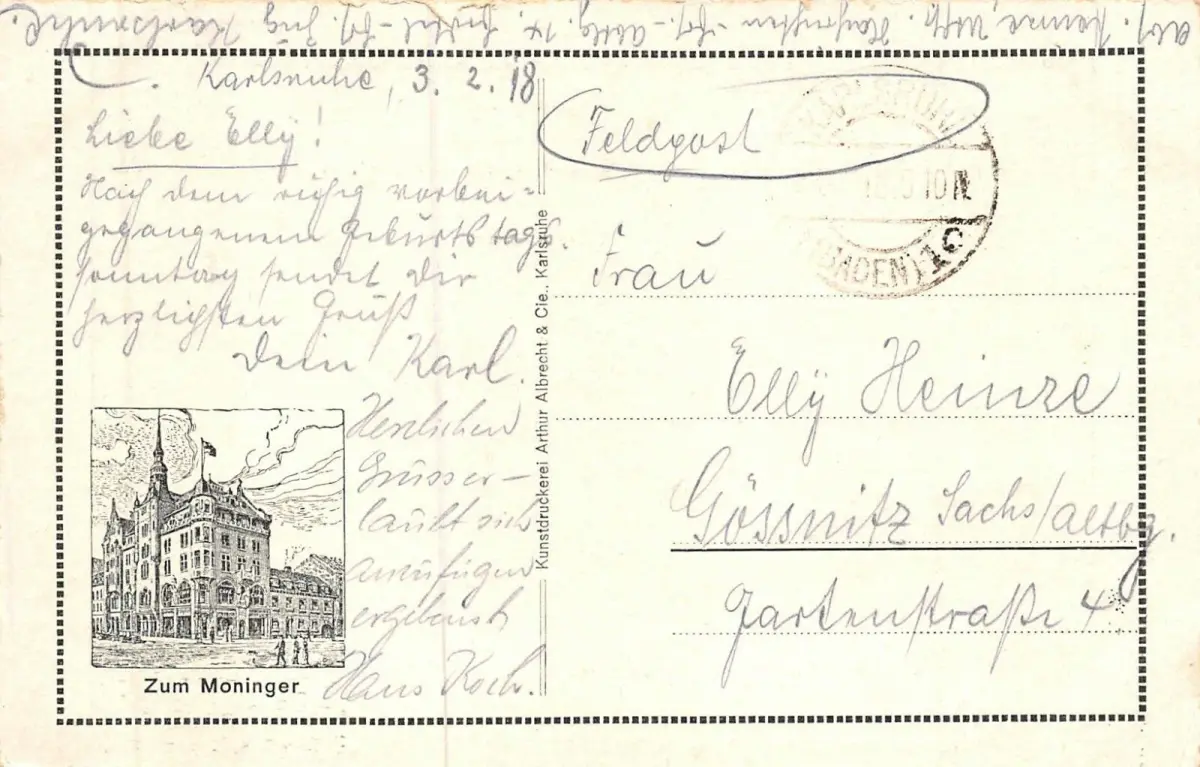 Abs. Heinze, Uffz.
Karlsruhe.
Karlsruhe, 3. 2. 18
Liebe Elly!
Nach dem ruhig vorbei-
gegangenem Geburtstags-
sonntag sendet Dir
herzlichsten Gruß
Dein Karl.
Herzlichen
Grüsse
erlaubt sich
anzufügen
ergebenst
Hans Koch.
Zum Moninger
Kunstdruckerei Arthur Albrecht & Cie., Karlsruhe
Feldpost
KARLSRUHE
(BADEN) 1
Frau
Elly Heinze
Gössnitz Sachs/Altbg.
Gartenstraße 4